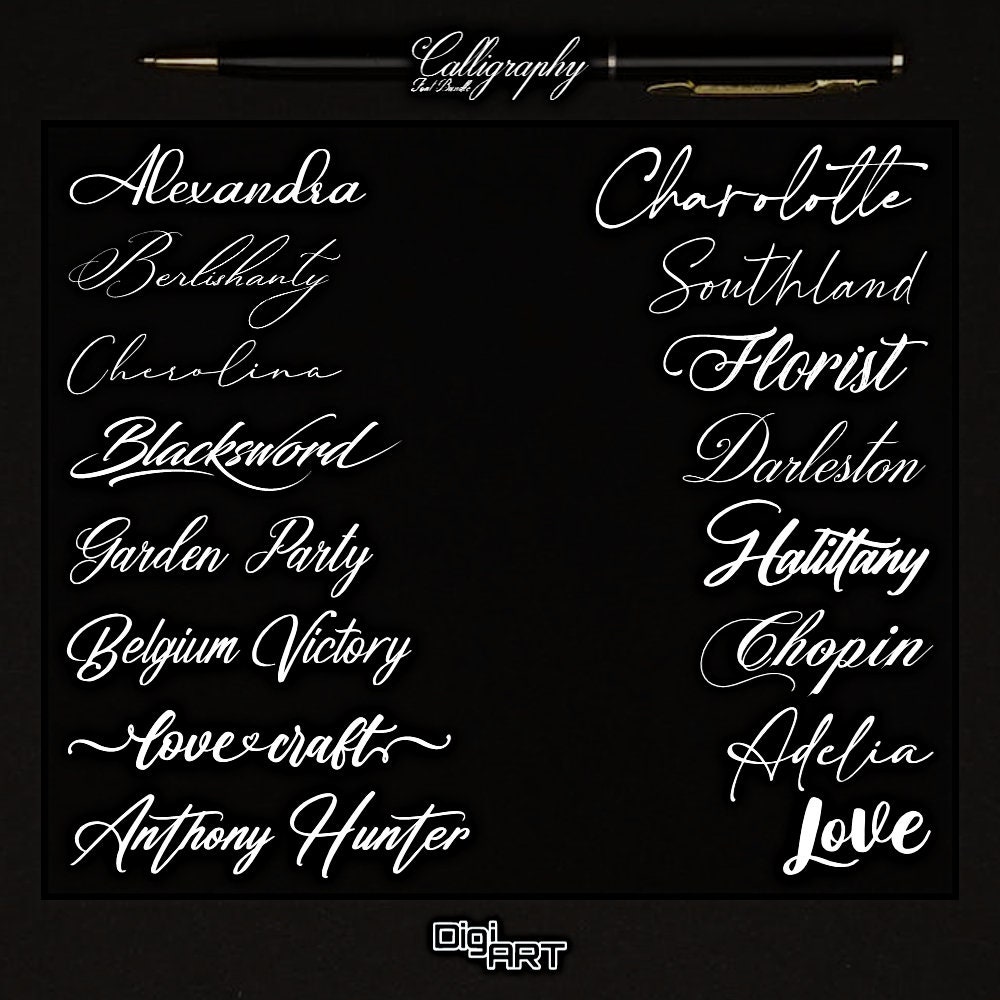 Calligraphy
Font Bundle
Alexandra
Berlishanty
Cherolina
Blacksword
Garden Party
Belgium Victory
love craft
Anthony Hunter
Charolotte
Southland
Florist
Darleston
Hatittany
Chopin
Adelia
Love
Digi
ART